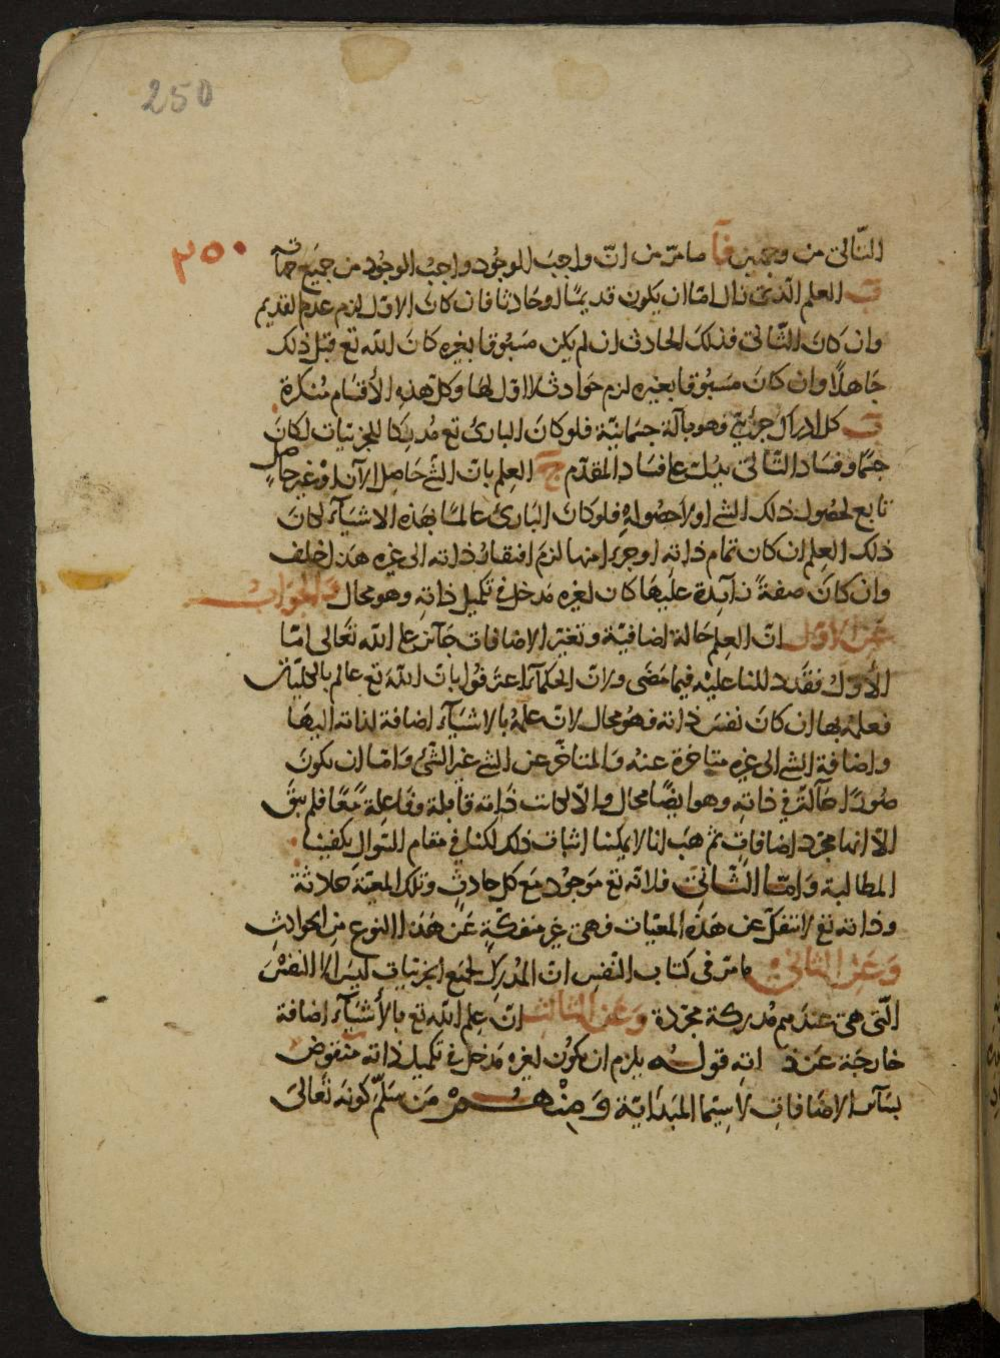 250
٢٥٠
الثاني من وجهين فآ ما مرّ من انّ واجبَ الوجُود واجبُ الوجُود من جميع جهاته
بَ العلم الّذى زال امّا ان يكون قديمًا او حادثا فان كانَ الاوّل لزم عدم القديم
وان كان الثّانى فذلكَ الحادث ان لم يكن مسَبُوقا بغيره كانَ اللّه تع قبل ذلك
جَاهلًا وان كانَ مسَبُوقا بغيره لزم حَوادث لا اوّل لها وكلّ هذه الأقسَام مُنكرة
بَ كل ادراك جزئىّ فهو بآلة جسمَانيّة فلو كانَ البارىُ تع مُدركا للجزئيات لكانَ
جسمًا وفسَاد التّالى يدلّ على فسَاد المقدّم جَ العِلم بانّ الشّئ حَاصل الآن او غير حاصل
تابع لحصُول ذلك الشئ او لاحصُولهِ فلو كانَ البَارئُ عالمًا بهَذه الاشيَآء لكانَ
ذلك العِلم ان كان تمام ذاته او جزءا منها لزمَ افتقار ذاته الى غيره هَذا خلف
وان كانَ صفةً زآيدة عليهَا كان لغيره مَدخل فى تكميل ذاته وهو محال والجَوابُ
عَن الاوّل انّ العِلم حَالة اضافيّة وتغيّر الاضافات جَآئز على اللّه تعَالى امّا
الأوّلُ فقد دللنا عليْه فيمَا مضَى ولانّ الحكمآء اعترفوُا بانّ اللّهَ تع عالم بالكليّات
فعلمُه بها ان كانَ نفسَ ذاته فهُو محال لانّ علمهُ بالاشيَآء اضافة لذاته اليهَا
واضافة الشئ الى غيره متاخرة عنهُ وَالمتاخّر عن الشئ غير الشّئ وَامّا ان يكونَ
صُورًا حَآلّة فى ذاته وهو ايضًا محال والّا لكانت ذَاته قابلة وفَاعلة مَعًا فلم يبقَ
الّا انها مجرّد اضافاتٍ ثم هبَ انّا لا يمكننا اثبات ذلك لكنّا فى مقام السّؤال يكفينا
المطالبة وَامّا الثّانى فلانّه تع مَوجُود مَع كل حادثٍ وتلك المعيّة حَادثة
وذاته تع لا تنفكّ عن هَذه المعيّات فهى غير منفكّةٍ عَن هَذا النوع مِن الحوادثِ
وَعَن الثانى ما مَرّ فى كتاب النّفسِ انّ المُدركَ لجميع الجزئيات ليسَ الّا النفسَ
الّتى هىَ عندَهم مُدركة مجرّدة وَعَن الثالث انّ عِلم اللّه تع بالأشيَآء اضافة
خارجَة عَن ذاته قولُه يلزم ان يكوُن لغيره مَدخل فى تكميل ذاته منقوض
بسَآئر الاضَافاتِ لا سِيّما المبَدَائيّة وَمِنْهُمْ مَن سَلّمَ كونَه تعَالىَ